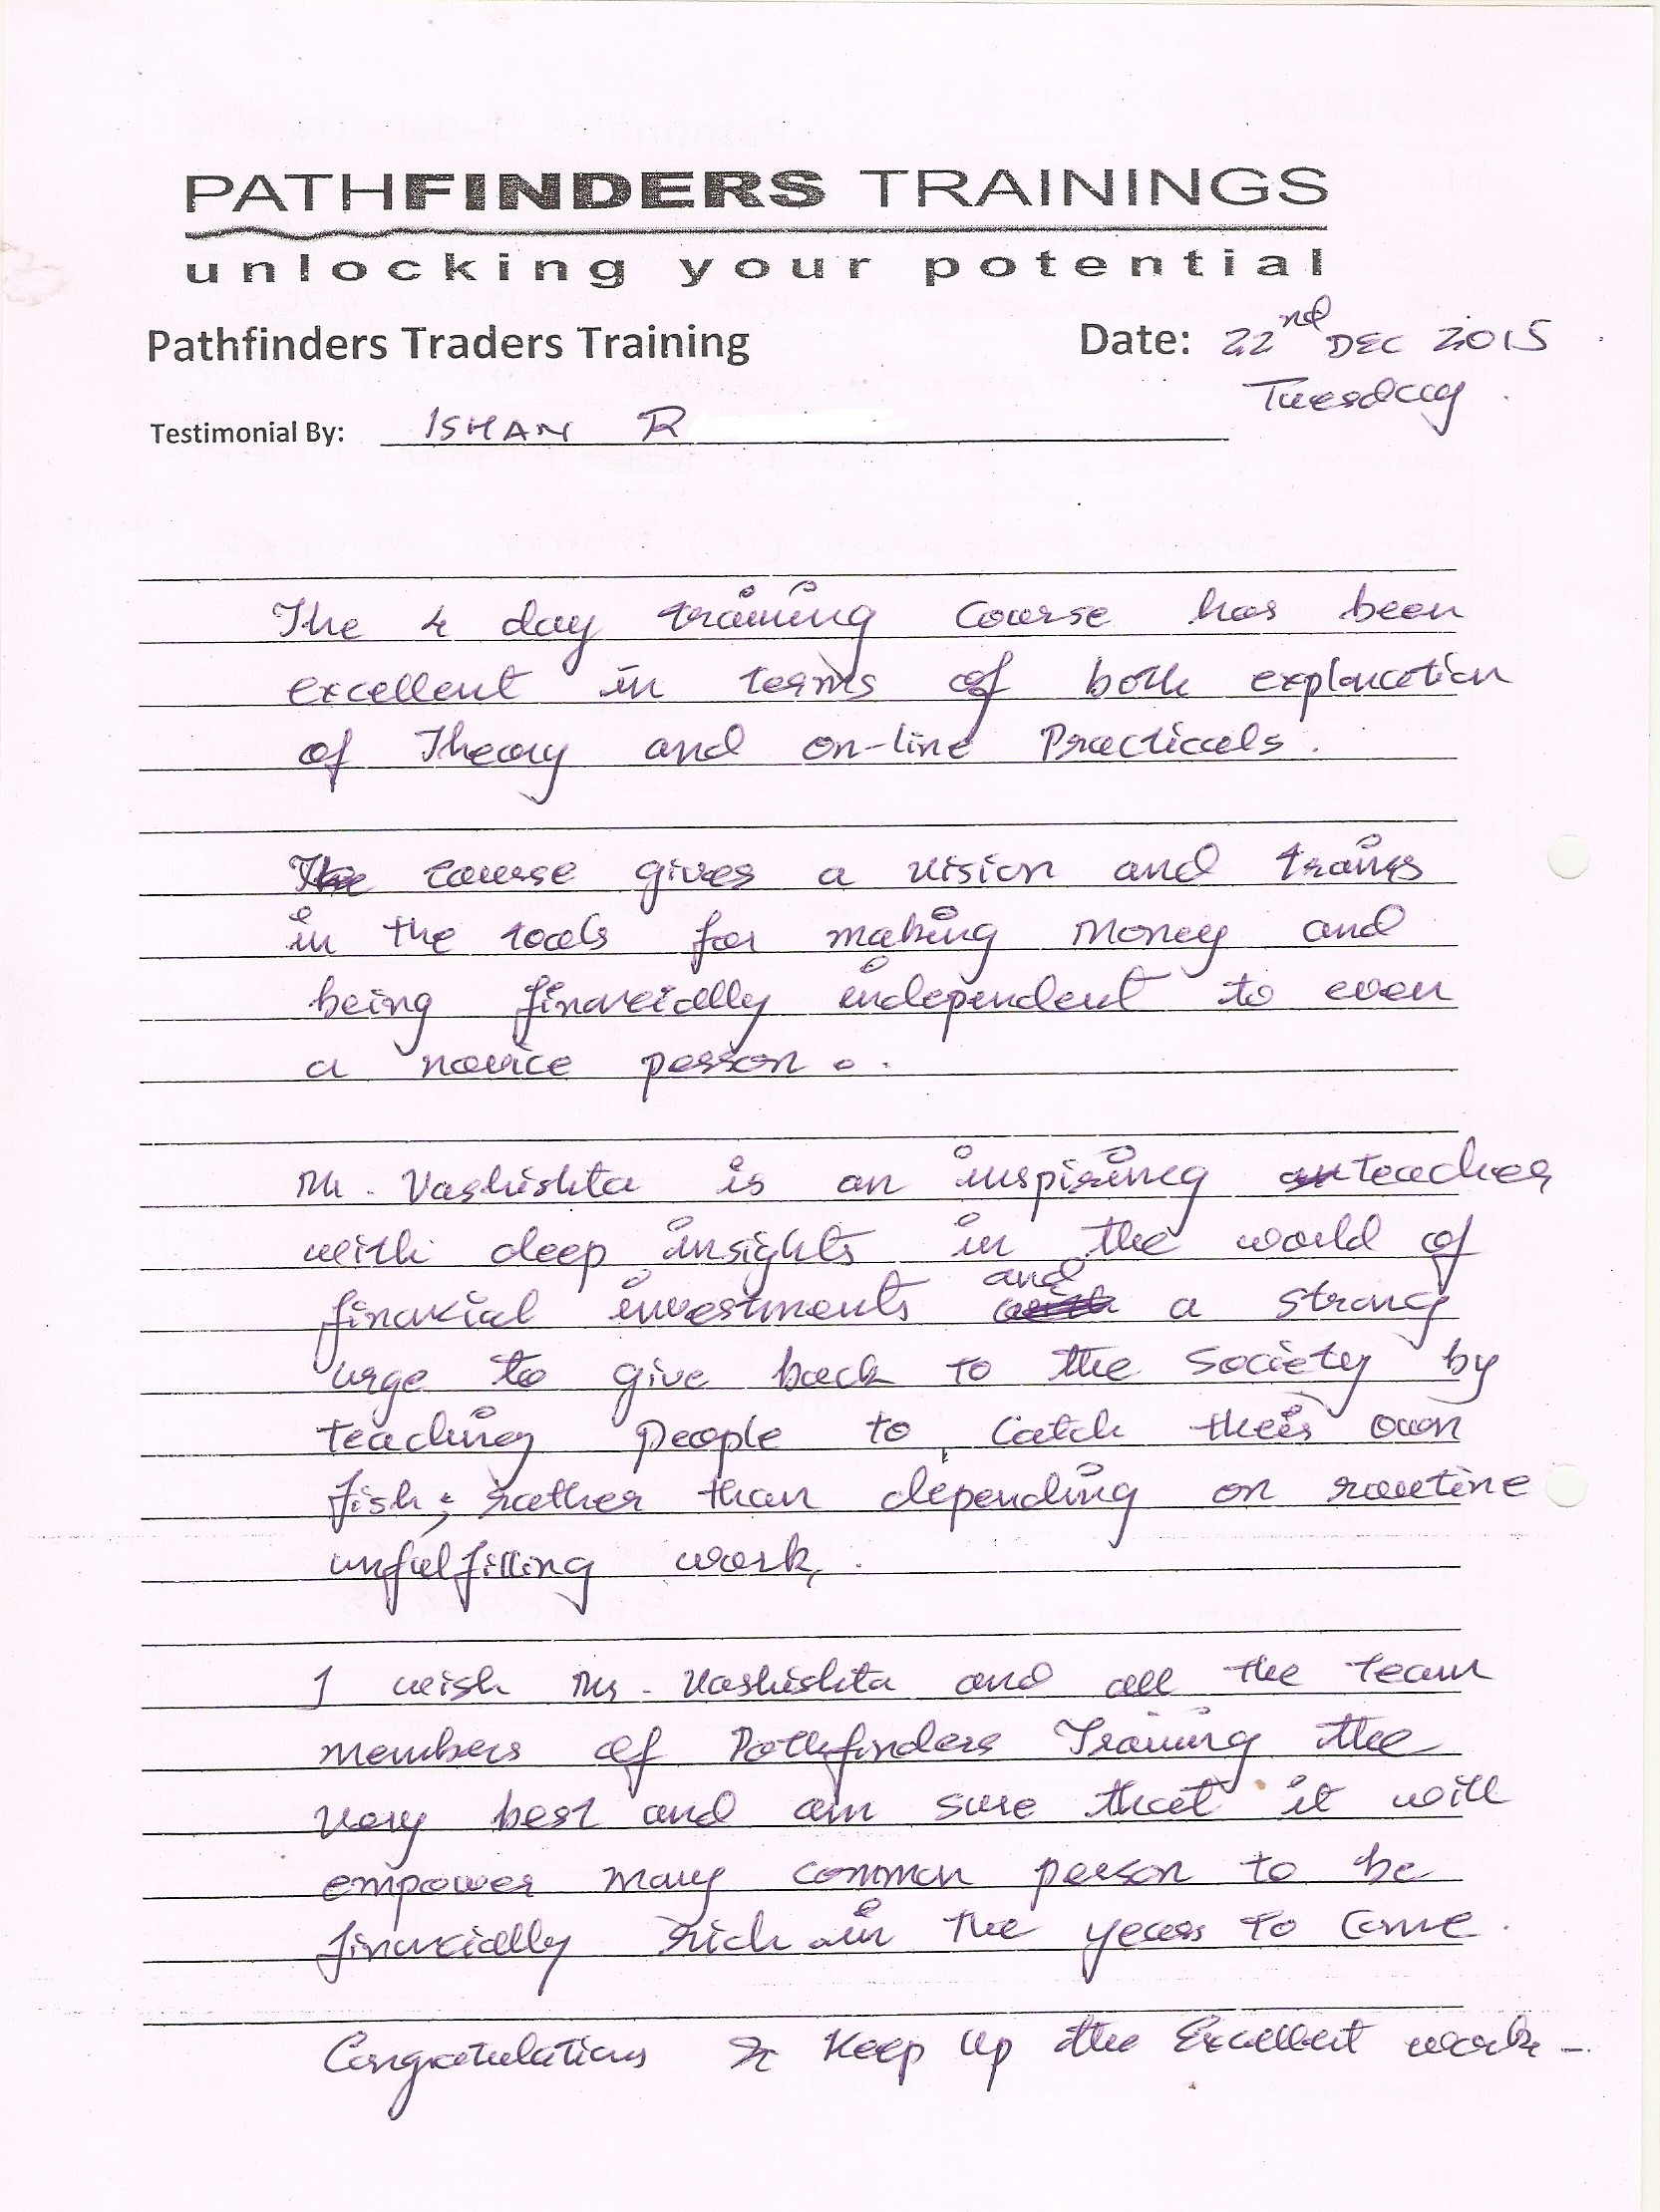 PATHFINDERS TRAININGS
unlocking your potential
Pathfinders Traders Training Date: 22nd DEC 2015
Tuesday
Testimonial By: ISHAN R
The 4 day training Course has been
excellent in terms of both explanation
of Theory and on-line Practicals.
The course gives a vision and trains
in the tools for making Money and
being financially independent to even
a novice person.
Mr. Vashishta is an inspiring teacher
with deep insights in the world of
financial investments and a strong
urge to give back to the Society by
teaching people to catch their own
fish; rather than depending on routine
unfulfilling work.
I wish Mr. Vashishta and all the team
members of Pathfinders Training the
very best and am sure that it will
empower many common person to be
financially rich in the years to come.
Congratulations & Keep Up the Excellent work -